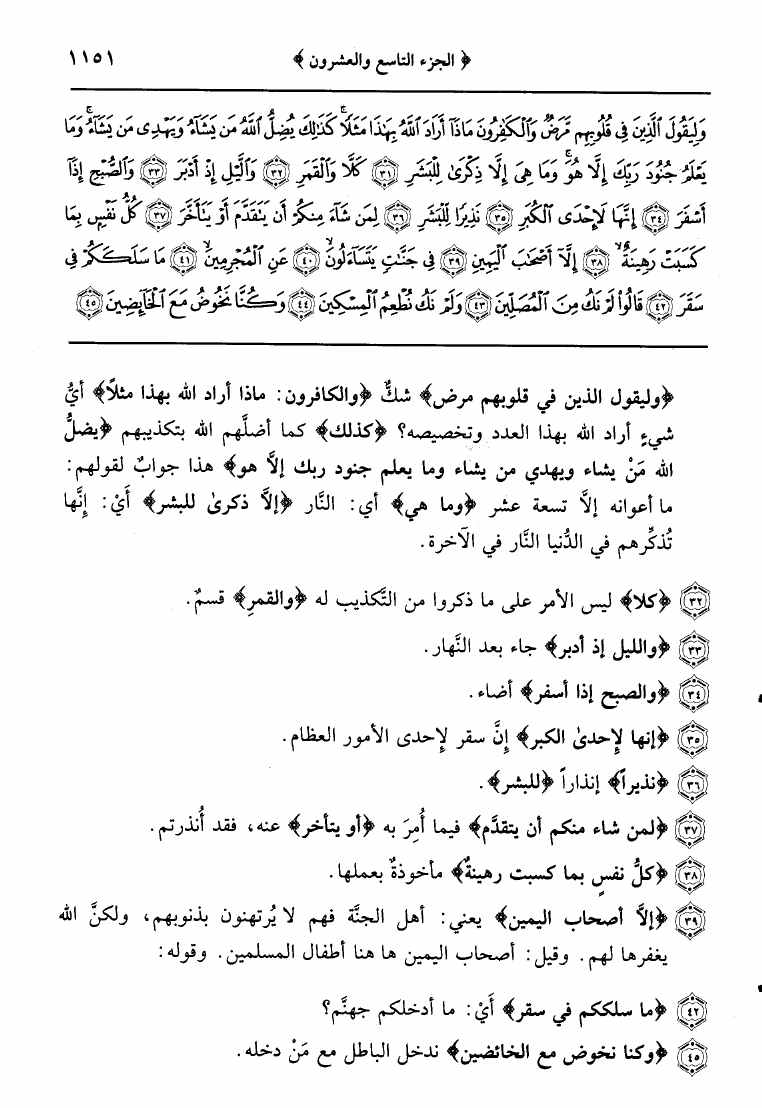 ﴿ الجزء التاسع والعشرون ﴾ ١١٥١
وَلِيَقُولَ الَّذِينَ فِي قُلُوبِهِم مَّرَضٌ وَالْكَافِرُونَ مَاذَا أَرَادَ اللَّهُ بِهَٰذَا مَثَلًا ۚ كَذَٰلِكَ يُضِلُّ اللَّهُ مَن يَشَاءُ وَيَهْدِي مَن يَشَاءُ ۚ وَمَا
يَعْلَمُ جُنُودَ رَبِّكَ إِلَّا هُوَ ۚ وَمَا هِيَ إِلَّا ذِكْرَىٰ لِلْبَشَرِ ﴿٣١﴾ كَلَّا وَالْقَمَرِ ﴿٣٢﴾ وَاللَّيْلِ إِذْ أَدْبَرَ ﴿٣٣﴾ وَالصُّبْحِ إِذَا
أَسْفَرَ ﴿٣٤﴾ إِنَّهَا لَإِحْدَى الْكُبَرِ ﴿٣٥﴾ نَذِيرًا لِّلْبَشَرِ ﴿٣٦﴾ لِمَن شَاءَ مِنكُمْ أَن يَتَقَدَّمَ أَوْ يَتَأَخَّرَ ﴿٣٧﴾ كُلُّ نَفْسٍ بِمَا
كَسَبَتْ رَهِينَةٌ ۙ ﴿٣٨﴾ إِلَّا أَصْحَابَ الْيَمِينِ ﴿٣٩﴾ فِي جَنَّاتٍ يَتَسَاءَلُونَ ۙ ﴿٤٠﴾ عَنِ الْمُجْرِمِينَ ۙ ﴿٤١﴾ مَا سَلَكَكُمْ فِي
سَقَرَ ﴿٤٢﴾ قَالُوا لَمْ نَكُ مِنَ الْمُصَلِّينَ ﴿٤٣﴾ وَلَمْ نَكُ نُطْعِمُ الْمِسْكِينَ ﴿٤٤﴾ وَكُنَّا نَخُوضُ مَعَ الْخَائِضِينَ ﴿٤٥﴾
﴿وليقول الذين في قلوبهم مرض﴾ شكٌّ ﴿والكافرون: ماذا أراد الله بهذا مثلاً﴾ أيُّ
شيءٍ أراد الله بهذا العدد وتخصيصه؟ ﴿كذلك﴾ كما أضلَّهم الله بتكذيبهم ﴿يضلُّ
الله مَنْ يشاء ويهدي من يشاء وما يعلم جنود ربك إلاَّ هو﴾ هذا جوابٌ لقولهم:
ما أعوانه إلاَّ تسعة عشر ﴿وما هي﴾ أي: النَّار ﴿إلاَّ ذكرىٰ للبشر﴾ أَيْ: إنَّها
تُذكِّرهم في الدُّنيا النَّار في الآخرة.
﴿٣٢﴾ ﴿كلا﴾ ليس الأمر على ما ذكروا من التَّكذيب له ﴿والقمرِ﴾ قسمٌ.
﴿٣٣﴾ ﴿والليل إذ أدبر﴾ جاء بعد النَّهار.
﴿٣٤﴾ ﴿والصبح إذا أسفر﴾ أضاء.
﴿٣٥﴾ ﴿إنها لإِحدىٰ الكبر﴾ إِنَّ سقر لإِحدى الأمور العظام.
﴿٣٦﴾ ﴿نذيراً﴾ إنذاراً ﴿للبشر﴾.
﴿٣٧﴾ ﴿لمن شاء منكم أن يتقدَّم﴾ فيما أُمِرَ به ﴿أو يتأخر﴾ عنه، فقد أُنذرتم.
﴿٣٨﴾ ﴿كلُّ نفسٍ بما كسبت رهينةٌ﴾ مأخوذةٌ بعملها.
﴿٣٩﴾ ﴿إلاَّ أصحاب اليمين﴾ يعني: أهل الجنَّة فهم لا يُرتهنون بذنوبهم، ولكنَّ الله
يغفرها لهم. وقيل: أصحاب اليمين ها هنا أطفال المسلمين. وقوله:
﴿٤٢﴾ ﴿ما سلككم في سقر﴾ أَيْ: ما أدخلكم جهنَّم؟
﴿٤٥﴾ ﴿وكنا نخوض مع الخائضين﴾ ندخل الباطل مع مَنْ دخله.